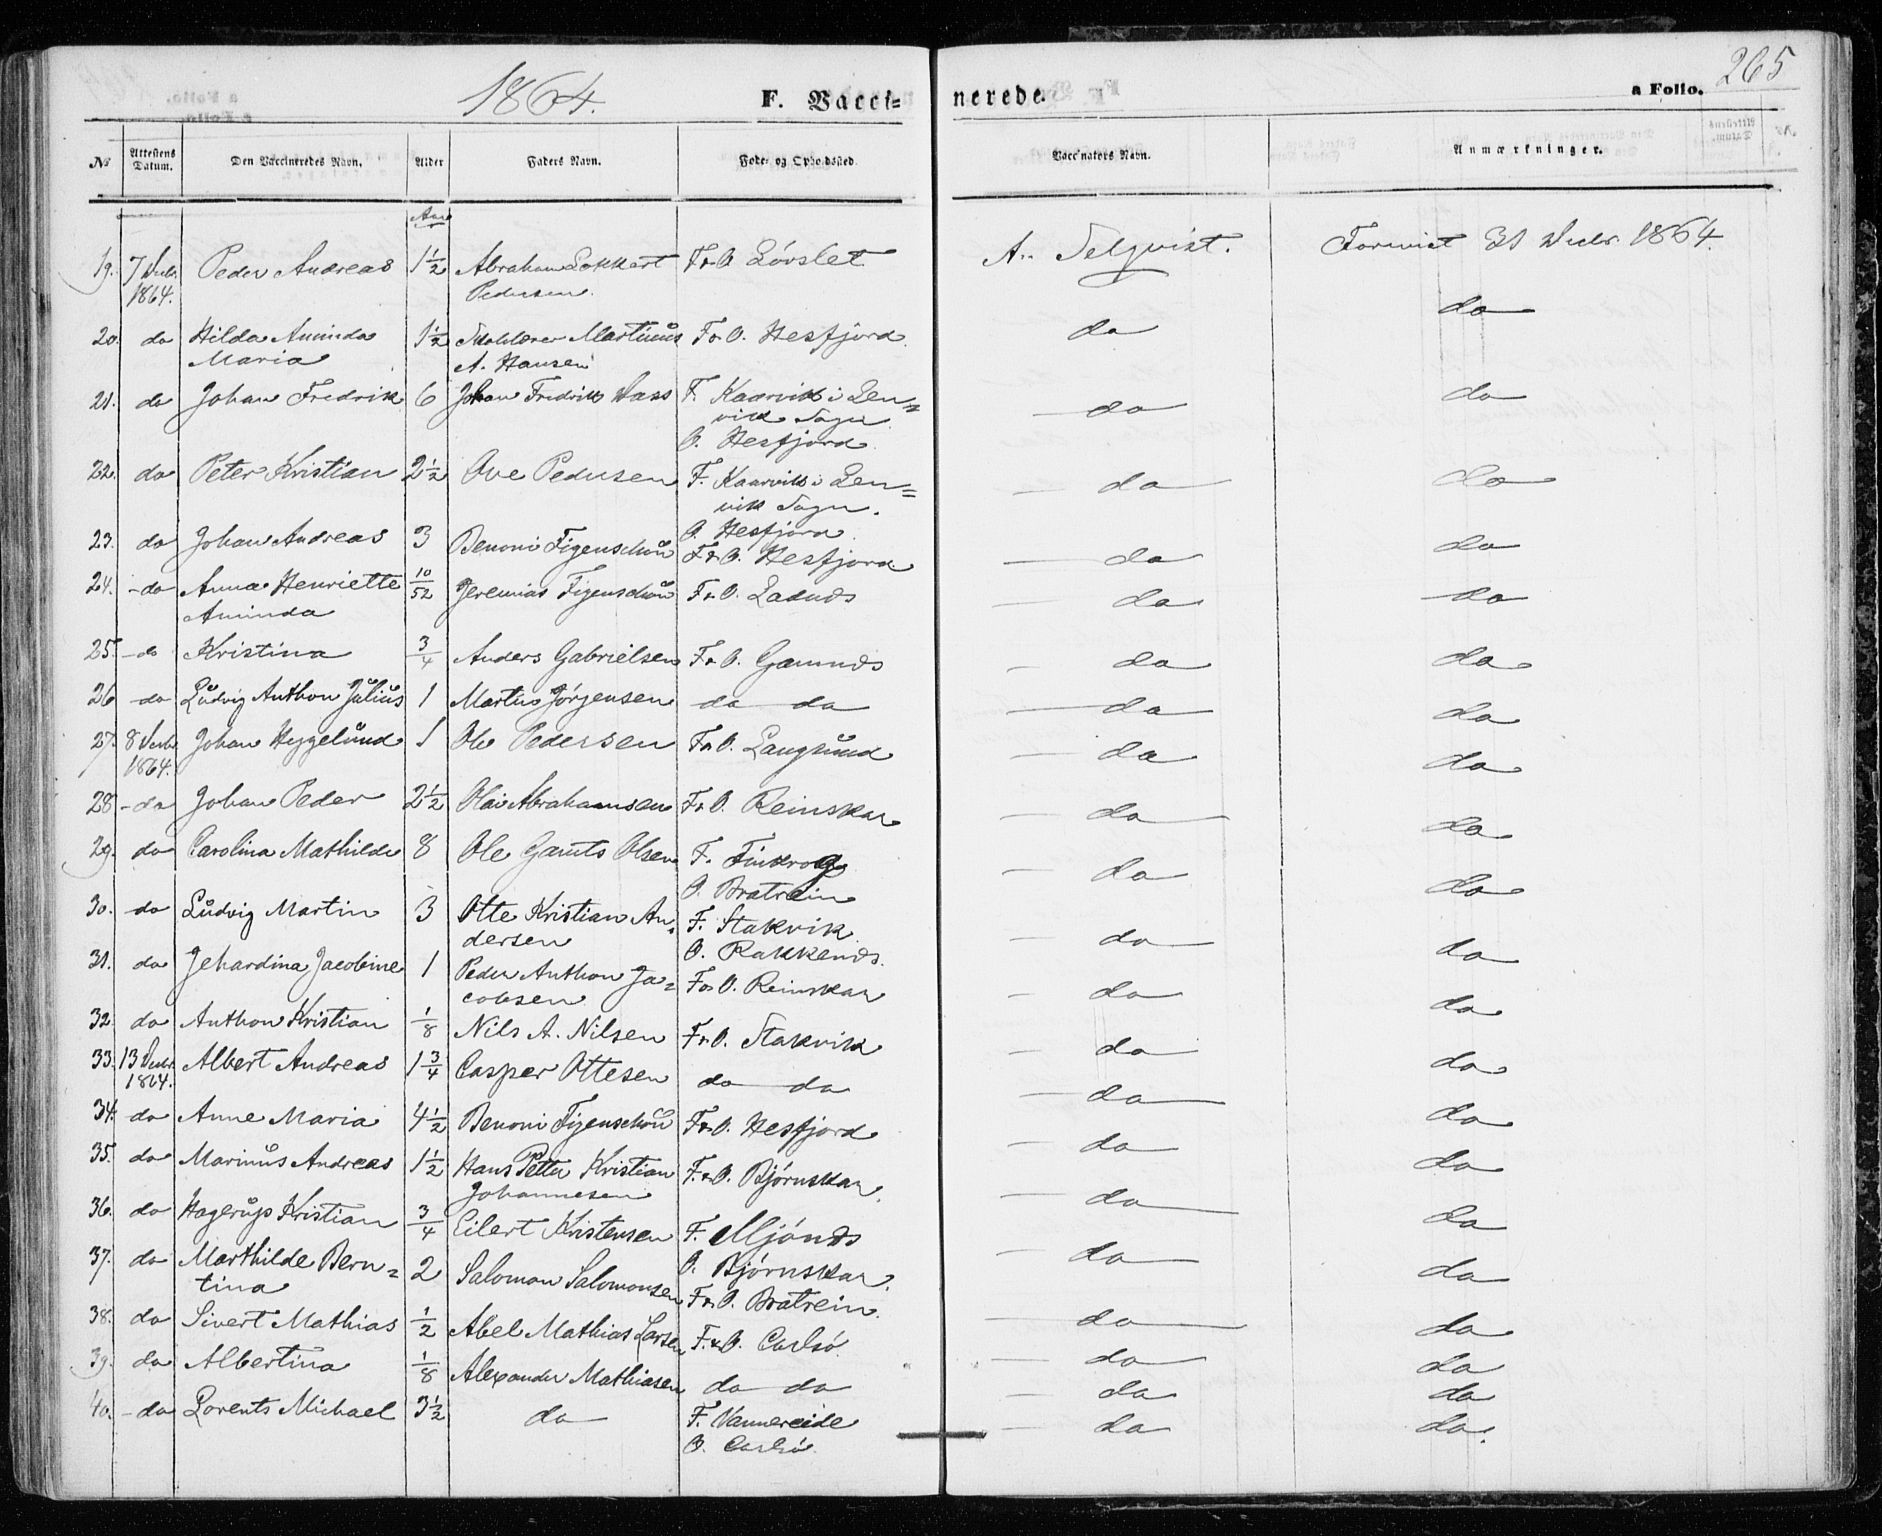 1864.
F. Vacci=
nerede.
a Folio.
265
No
Attestens Datum.
Den Vaccineredes Navn.
Alder
Faders Navn.
Føde- og Opholdssted
Vaccinators Navn.
Anmærkninger.
Aar
19. 7 Decbr 1864. Peder Andreas 1½ Abraham Lokkert Pedersen. F&O Løvslet A. Selqvist. Forevist 31 Decbr. 1864.
20. do Hilda Aminda Maria 1½ Martinus A. Hansen F&O. Hesfjord. do do
21. do Johan Fredrik 6 Johan Fredrik Wass F. Kaarvik i Len=
vik Sogn
O. Hesfjord. do do
22. do Peter Kristian 2½ Ove Pedersen F. Kaarvik i Len=
vik Sogn.
O. Hesfjord. do do
23. do Johan Andreas 3 Benoni Figenschou F&O. Hesfjord do do
24. do Anna Henriette Aminda 10/52 Jeremias Figenschou F&O. do do
25. do Kristina ¾ Anders Gabrielsen F&O. do do
26 do Ludvig Anthon Julius 1 Martin Jørgensen do do do do
27. 8 Decbr 1864. Johan Heggelund 1 Ole Pedersen F&O. Langsund do do
28 do Johan Peder 2½ Olai Abrahamsen F&O. Reinskar do do
29. do Carolina Mathilde 8 Ole Olsen F. Finkrog
O. Bratrein do do
30. do Ludvig Martin 3 Otte Kristian An=
dersen F. Stakvik
O. do do
31. do Jehardina Jacobine 1 Peder Anthon Ja=
cobsen F&O. Reinskar do do
32 do Anthon Kristian ⅛ Nils A. Nilsen F&O. Stakvik do do
33. 13 Decbr 1864. Albert Andreas 1¾ Casper Ottesen do do do do
34. do Anne Maria 4½ Benoni Figenschou F&O. Hesfjord do do
35. do Marinus Andreas 1½ Hans Petter Kristian
Johannesen F.&O. Bjørnskar. do do
36. do Hagerup Kristian ¾ Eilert Kristensen F. Mjønds
O. Bjørnskar. do do
37. do Marthilde Bern=
tina 2 Salomon Salomonsen F&O. Bratrein. do do
38. do Sivert Mathias ½ Abel Mathias Larsen F.&O. Carlsø. do do
39. do Albertina ⅛ Alexander Mathiasen do do do do
40. do Lorents Michael 3½ do F. Vannereide
O. Carlsø. do do.